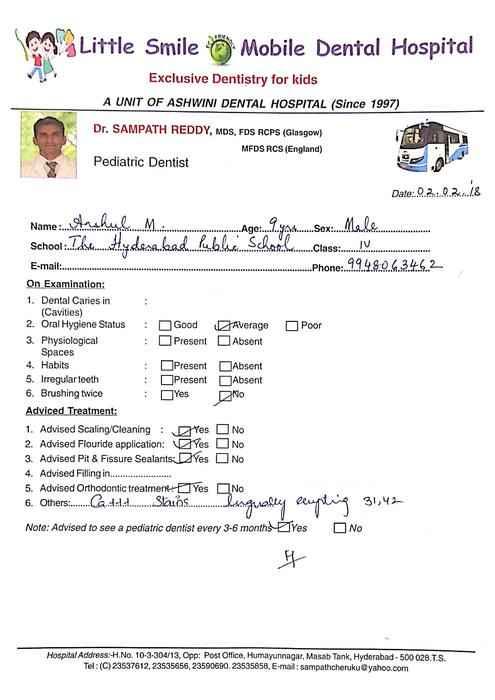 Little Smile ECO FRIENDLY Mobile Dental Hospital
Exclusive Dentistry for kids
A UNIT OF ASHWINI DENTAL HOSPITAL (Since 1997)
Dr. SAMPATH REDDY, MDS, FDS RCPS (Glasgow)
MFDS RCS (England)
Pediatric Dentist
Date: 02.02.18
Name: Anshul M. Age: 9yrs Sex: Male
School: The Hyderabad Public School Class: IV
E-mail: Phone: 9948063462
On Examination:
1. Dental Caries in :
(Cavities)
2. Oral Hygiene Status : Good Average Poor
3. Physiological : Present Absent
Spaces
4. Habits : Present Absent
5. Irregular teeth : Present Absent
6. Brushing twice : Yes No
Adviced Treatment:
1. Advised Scaling/Cleaning : Yes No
2. Advised Flouride application: Yes No
3. Advised Pit & Fissure Sealants: Yes No
4. Advised Filling in
5. Advised Orthodontic treatment Yes No
6. Others: Ca+++ Stains lingually erupting 31,42
Note: Advised to see a pediatric dentist every 3-6 months Yes No
Hospital Address:-H.No. 10-3-304/13, Opp: Post Office, Humayunnagar, Masab Tank, Hyderabad - 500 028.T.S.
Tel : (C) 23537612, 23535656, 23590690. 23535858, E-mail : sampathcheruku@yahoo.com